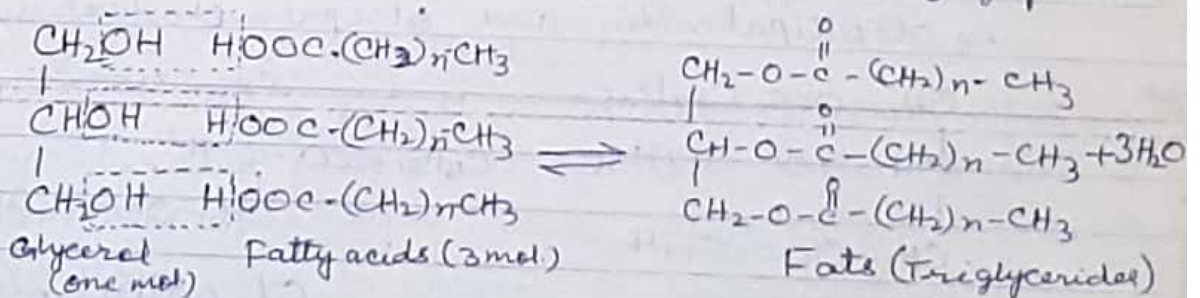 CH₂OH HOOC.(CH₂)n-CH₃
CHOH HOOC-(CH₂)n-CH₃
CH₂OH HOOC-(CH₂)nCH₃
Glycerol
(one mol.)
Fatty acids (3mol.)
⇌
O
||
CH₂-O-C-(CH₂)n-CH₃
O
||
CH-O-C-(CH₂)n-CH₃ +3H₂O
O
||
CH₂-O-C-(CH₂)n-CH₃
Fats (Triglycerides)